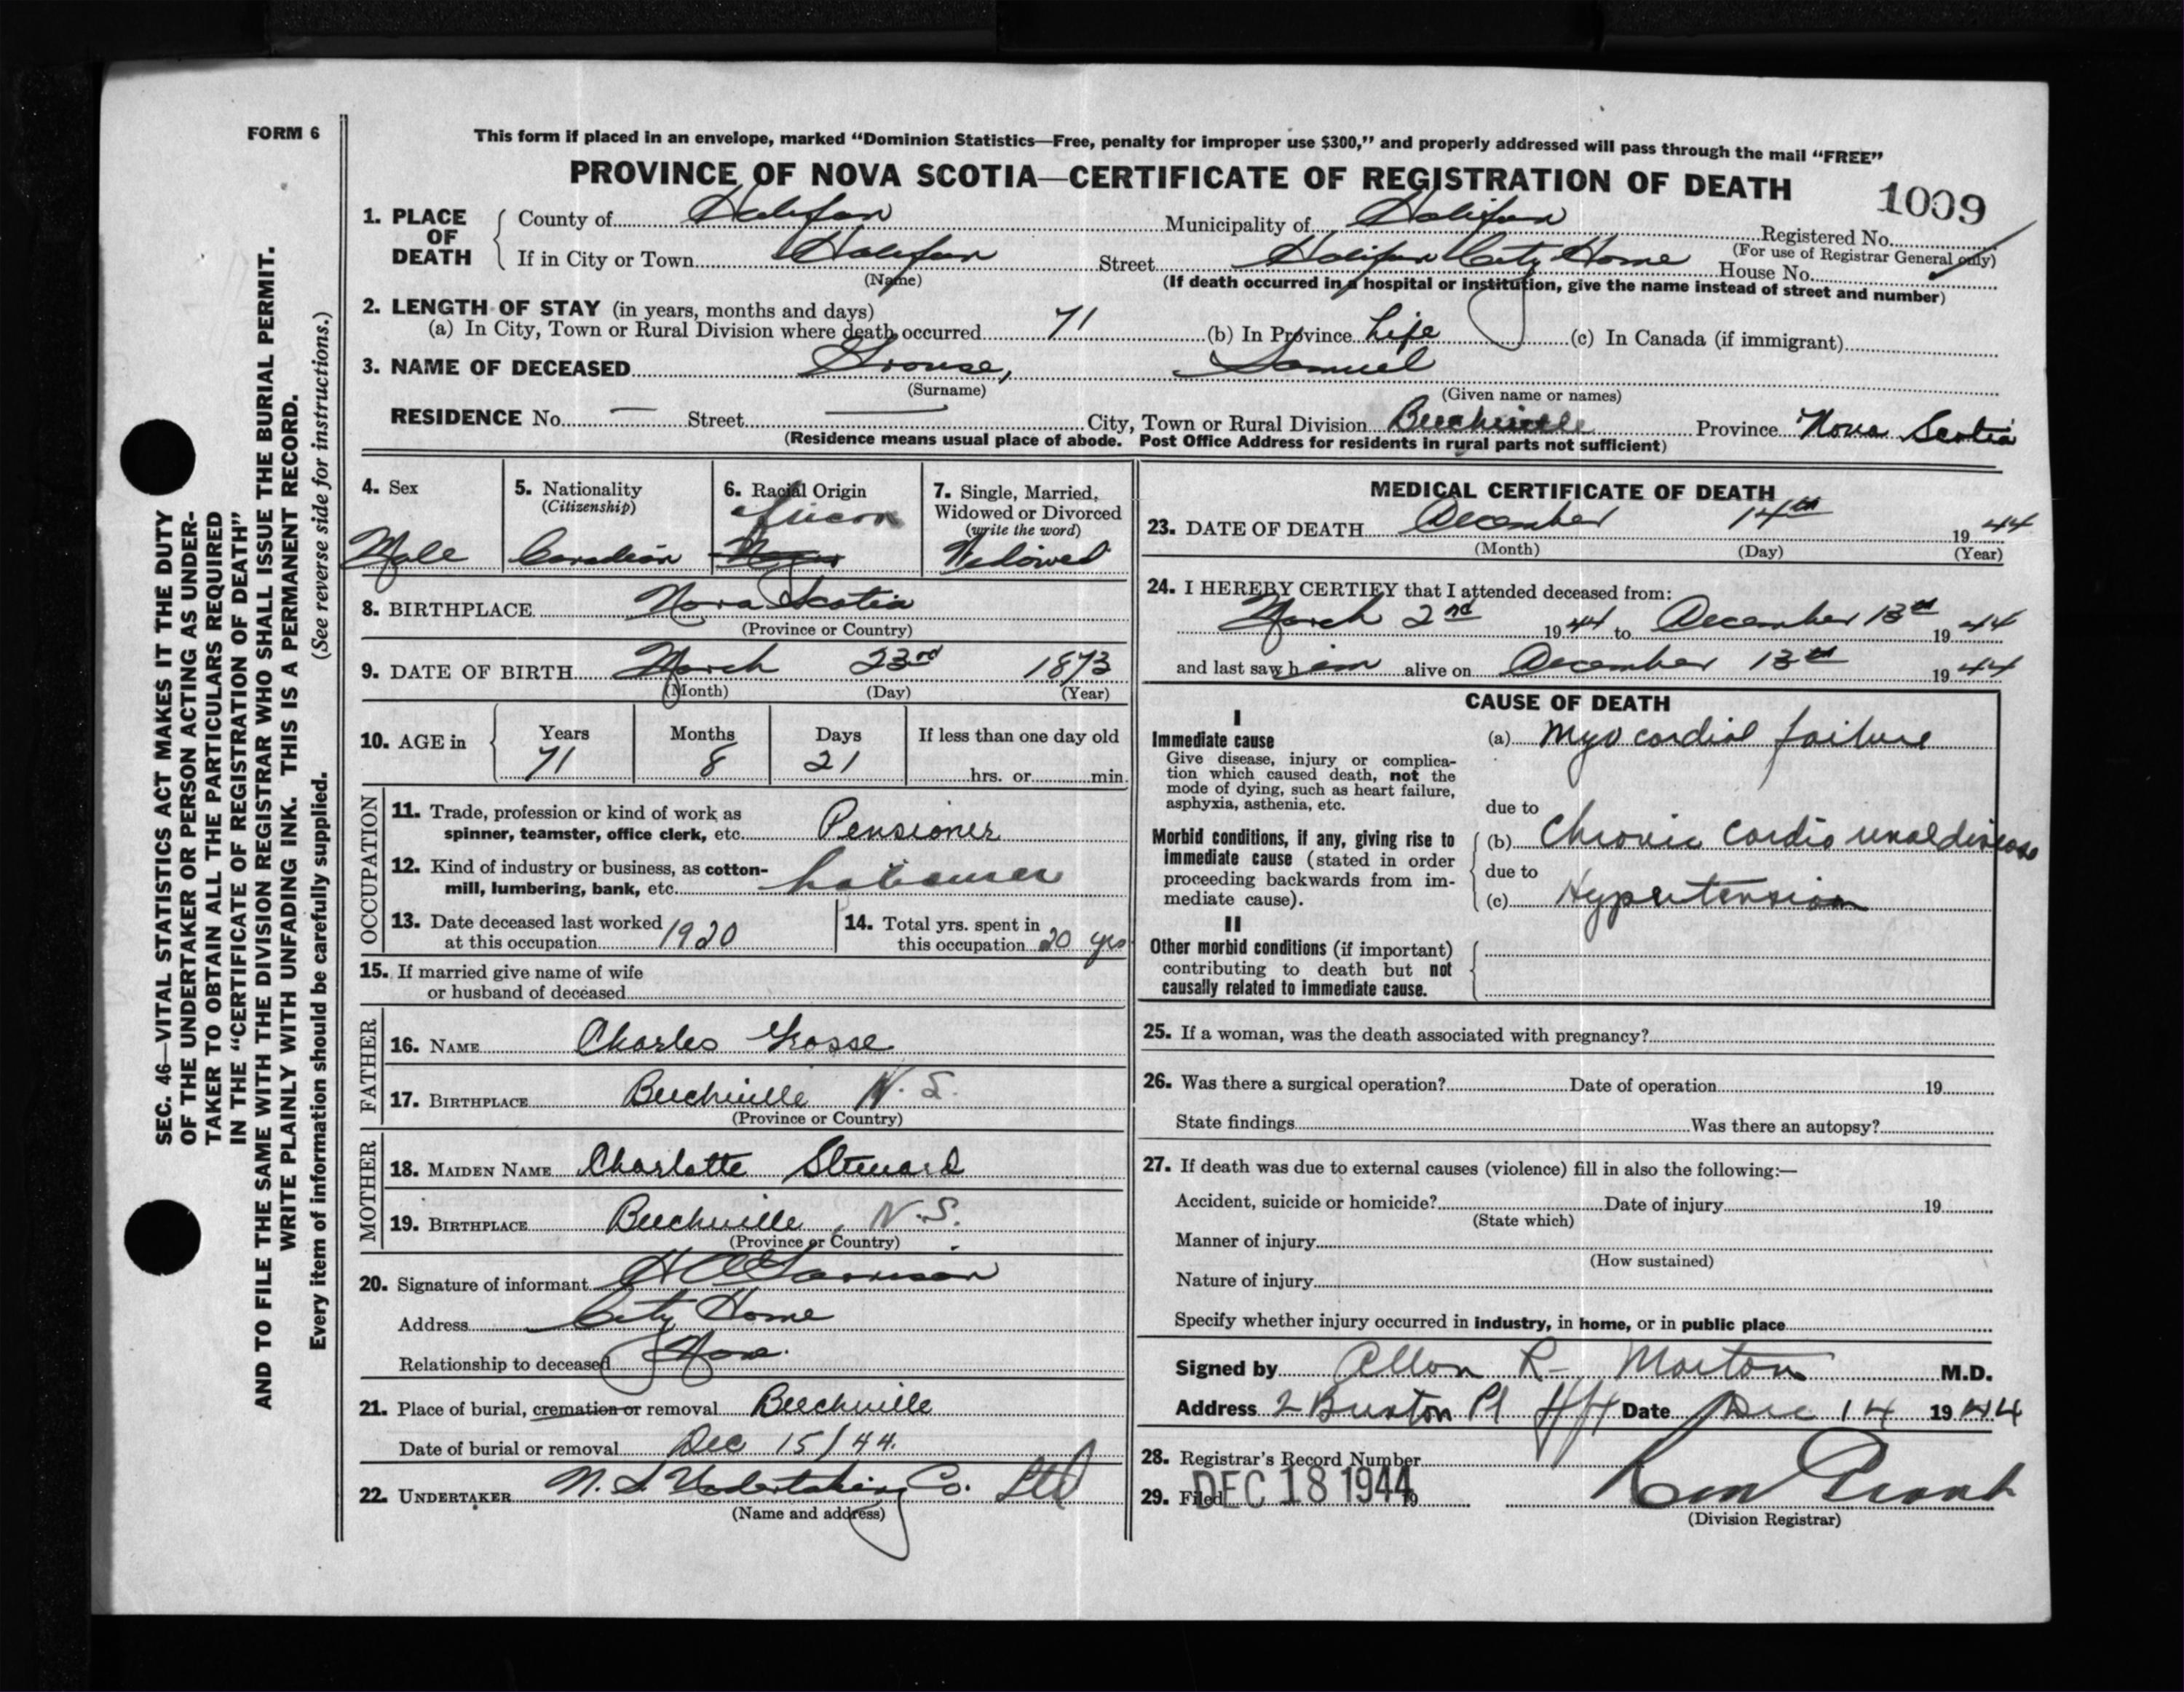 FORM 6
This form if placed in an envelope, marked “Dominion Statistics—Free, penalty for improper use $300,” and properly addressed will pass through the mail “FREE”
PROVINCE OF NOVA SCOTIA—CERTIFICATE OF REGISTRATION OF DEATH
1009
1. PLACE OF DEATH
County of Halifax Municipality of Halifax Registered No.
(For use of Registrar General only)
If in City or Town Halifax Street Halifax City Home House No.
(Name) (If death occurred in a hospital or institution, give the name instead of street and number)
2. LENGTH OF STAY (in years, months and days)
(a) In City, Town or Rural Division where death occurred 71 (b) In Province Life (c) In Canada (if immigrant)
3. NAME OF DECEASED Grouse, Samuel
(Surname) (Given name or names)
RESIDENCE No. — Street — City, Town or Rural Division Beechville Province Nova Scotia
(Residence means usual place of abode. Post Office Address for residents in rural parts not sufficient)
4. Sex
Male
5. Nationality
(Citizenship)
Canadian
6. Racial Origin
African
Negro
7. Single, Married,
Widowed or Divorced
(write the word)
Widowed
8. BIRTHPLACE Nova Scotia
(Province or Country)
9. DATE OF BIRTH March 23rd 1873
(Month) (Day) (Year)
10. AGE in
Years Months Days If less than one day old
71 8 21 hrs. or min.
OCCUPATION
11. Trade, profession or kind of work as
spinner, teamster, office clerk, etc. Pensioner
12. Kind of industry or business, as cotton-
mill, lumbering, bank, etc. Labourer
13. Date deceased last worked
at this occupation 1920
14. Total yrs. spent in
this occupation 20 yrs
15. If married give name of wife
or husband of deceased
FATHER
16. NAME Charles Grosse
17. BIRTHPLACE Beechville N.S.
(Province or Country)
MOTHER
18. MAIDEN NAME Charlotte Steward
19. BIRTHPLACE Beechville, N.S.
(Province or Country)
20. Signature of informant
Address City Home
Relationship to deceased None.
21. Place of burial, cremation or removal Beechville
Date of burial or removal Dec 15/44.
22. UNDERTAKER N.S. Undertaking Co. Ltd
(Name and address)
MEDICAL CERTIFICATE OF DEATH
23. DATE OF DEATH December 14th 1944
(Month) (Day) (Year)
24. I HEREBY CERTIFY that I attended deceased from:
March 2nd 1944 to December 13th 1944
and last saw him alive on December 13th 1944
CAUSE OF DEATH
I
Immediate cause
Give disease, injury or complica-
tion which caused death, not the
mode of dying, such as heart failure,
asphyxia, asthenia, etc.
(a) Myocardial failure
due to
Morbid conditions, if any, giving rise to
immediate cause (stated in order
proceeding backwards from im-
mediate cause).
(b) Chronic cardio renal disease
due to
(c) Hypertension
II
Other morbid conditions (if important)
contributing to death but not
causally related to immediate cause.
25. If a woman, was the death associated with pregnancy?
26. Was there a surgical operation? Date of operation 19
State findings Was there an autopsy?
27. If death was due to external causes (violence) fill in also the following:—
Accident, suicide or homicide? Date of injury 19
(State which)
Manner of injury
(How sustained)
Nature of injury
Specify whether injury occurred in industry, in home, or in public place
Signed by Allan R. Morton M.D.
Address 2 Buxton Pl Hfx Date Dec 14 1944
28. Registrar's Record Number
29. Filed DEC 18 1944 19
(Division Registrar)
SEC. 46—VITAL STATISTICS ACT MAKES IT THE DUTY
OF THE UNDERTAKER OR PERSON ACTING AS UNDER-
TAKER TO OBTAIN ALL THE PARTICULARS REQUIRED
IN THE “CERTIFICATE OF REGISTRATION OF DEATH”
AND TO FILE THE SAME WITH THE DIVISION REGISTRAR WHO SHALL ISSUE THE BURIAL PERMIT.
WRITE PLAINLY WITH UNFADING INK. THIS IS A PERMANENT RECORD.
Every item of information should be carefully supplied. (See reverse side for instructions.)